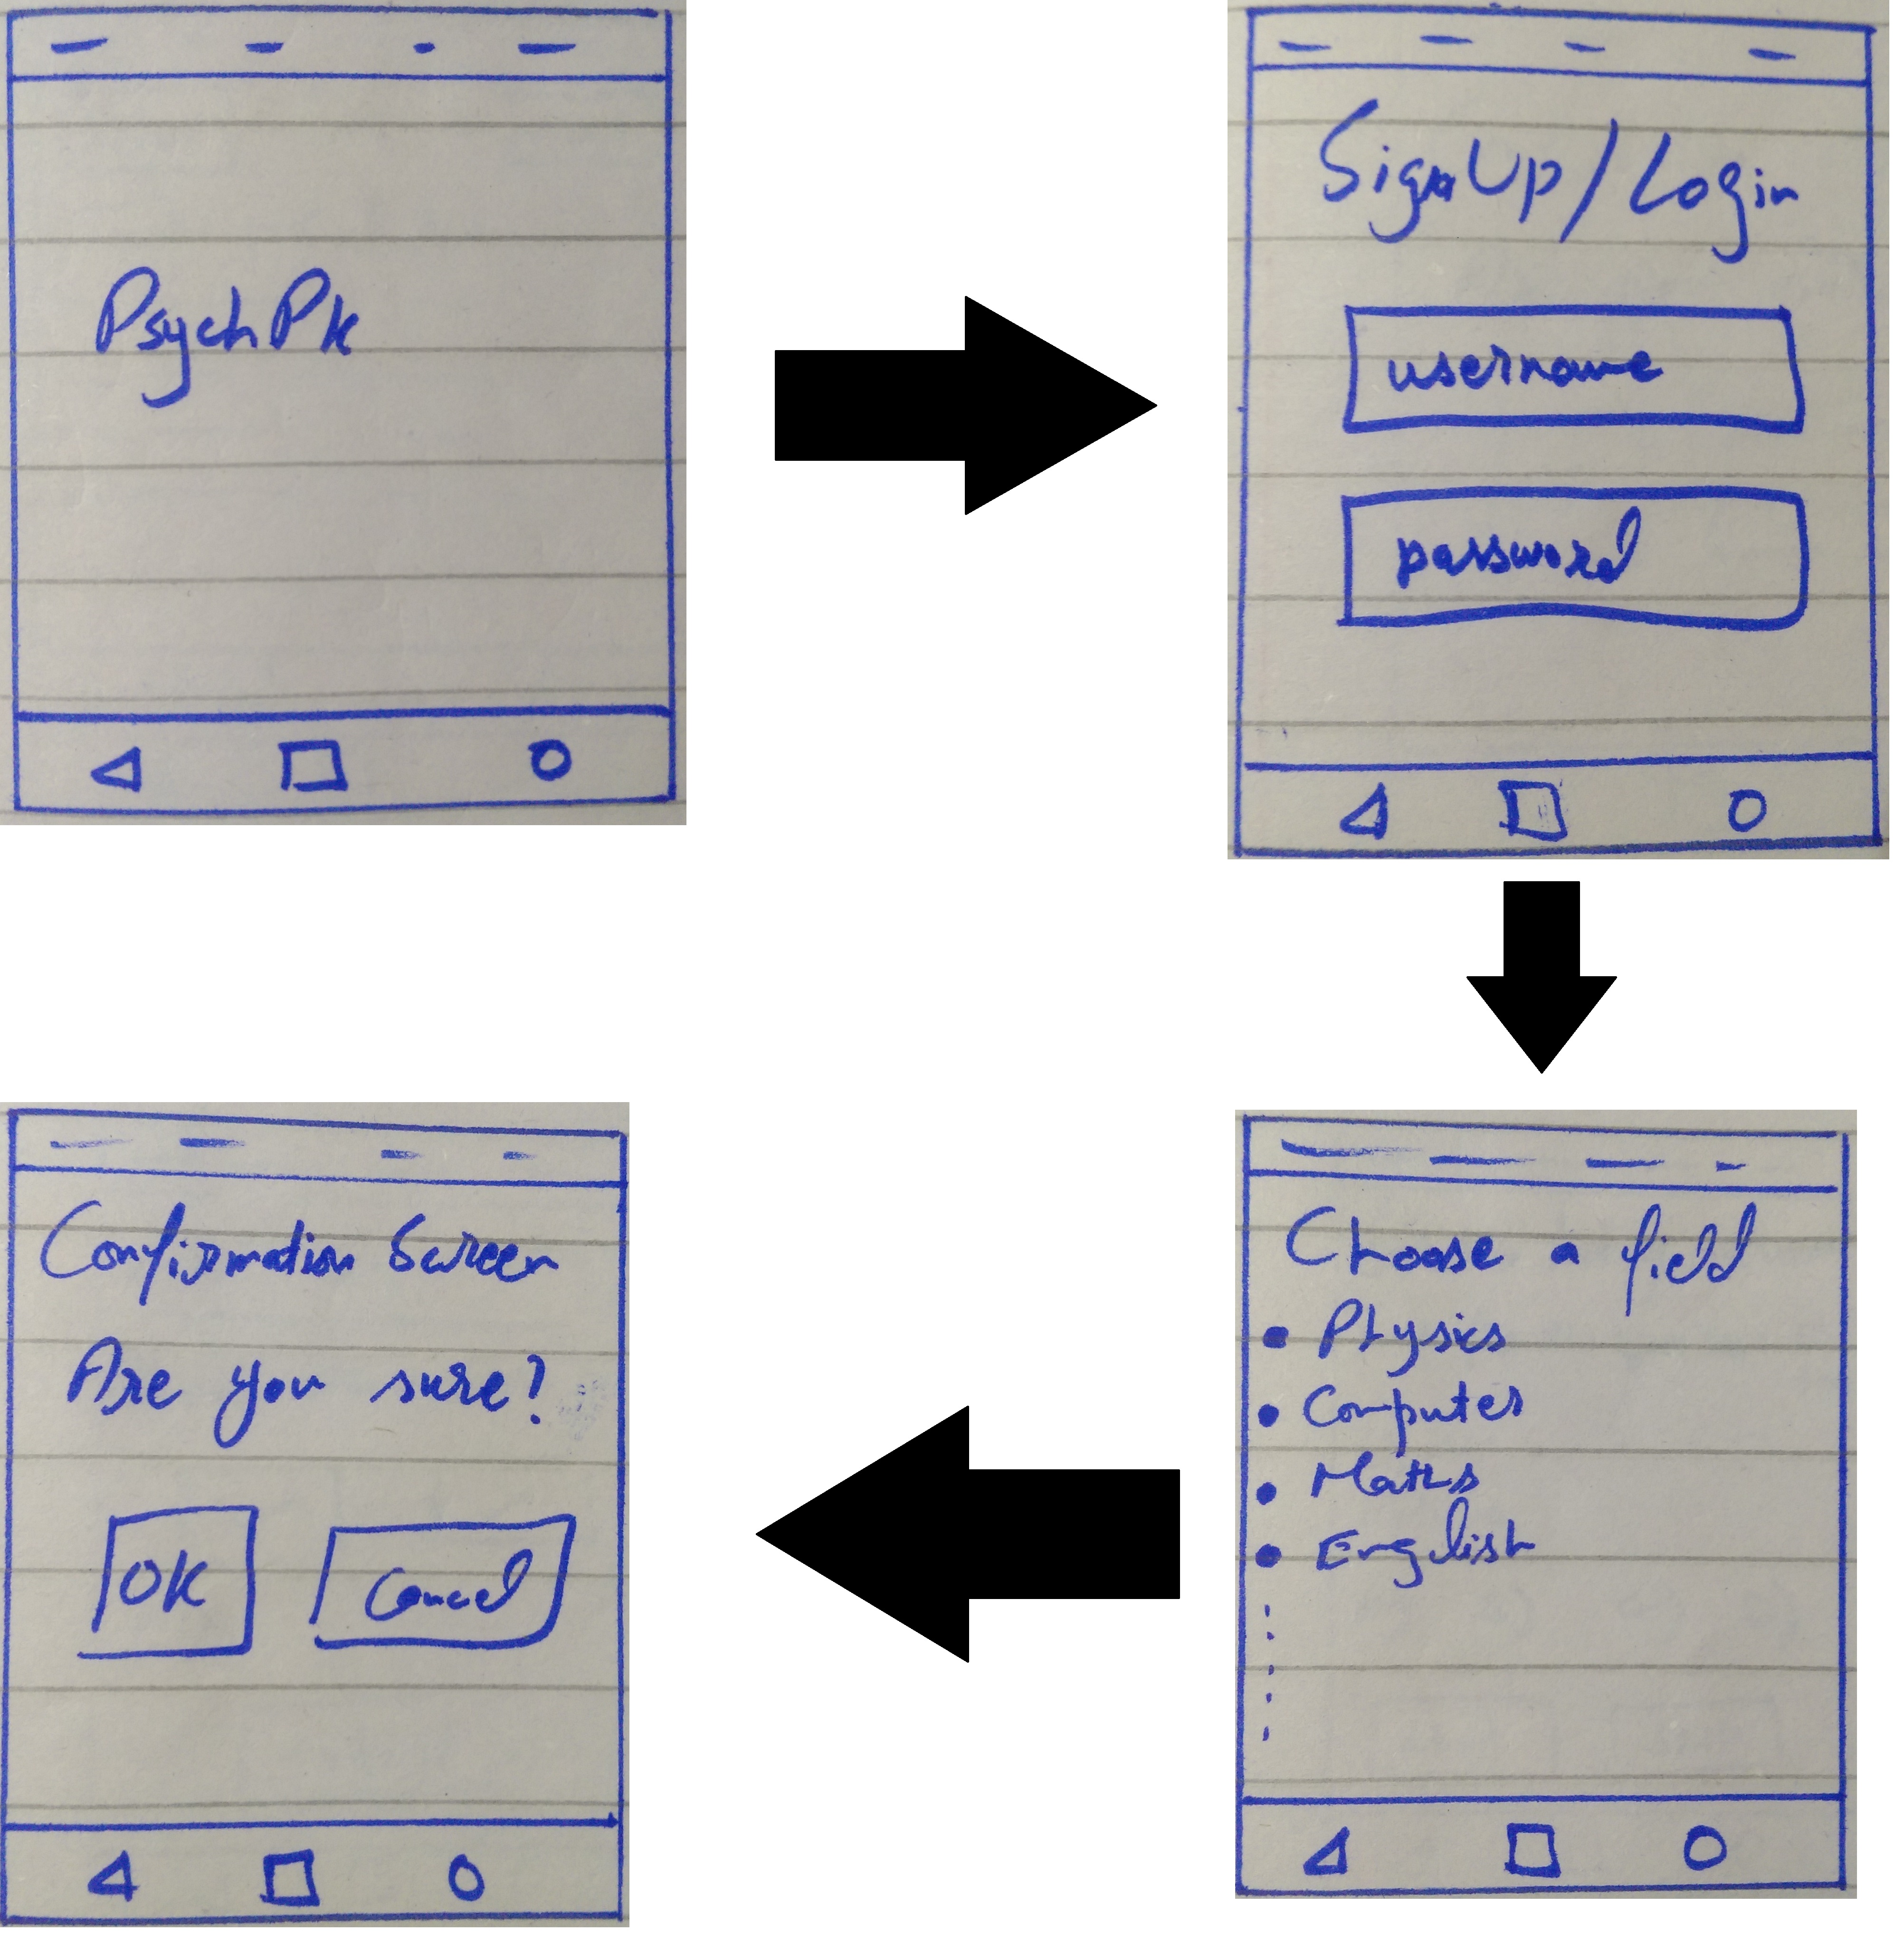 PsychPk
SignUp/Login
username
password
Choose a field
• Physics
• Computer
• Maths
• English
Confirmation Screen
Are you sure?
OK
Cancel